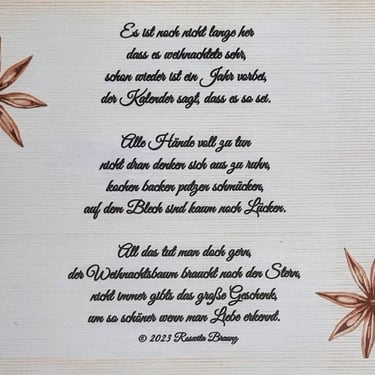 Es ist noch nicht lange her
dass es weihnachtete sehr,
schon wieder ist ein Jahr vorbei,
der Kalender sagt, dass es so sei.
Alle Hände voll zu tun
nicht dran denken sich aus zu ruhn,
kochen backen putzen schmücken,
auf dem Blech sind kaum noch Lücken.
All das tut man doch gern,
der Weihnachtsbaum braucht noch den Stern,
nicht immer gibts das große Geschenk,
um so schöner wenn man Liebe erkennt.
© 2023 Roswita